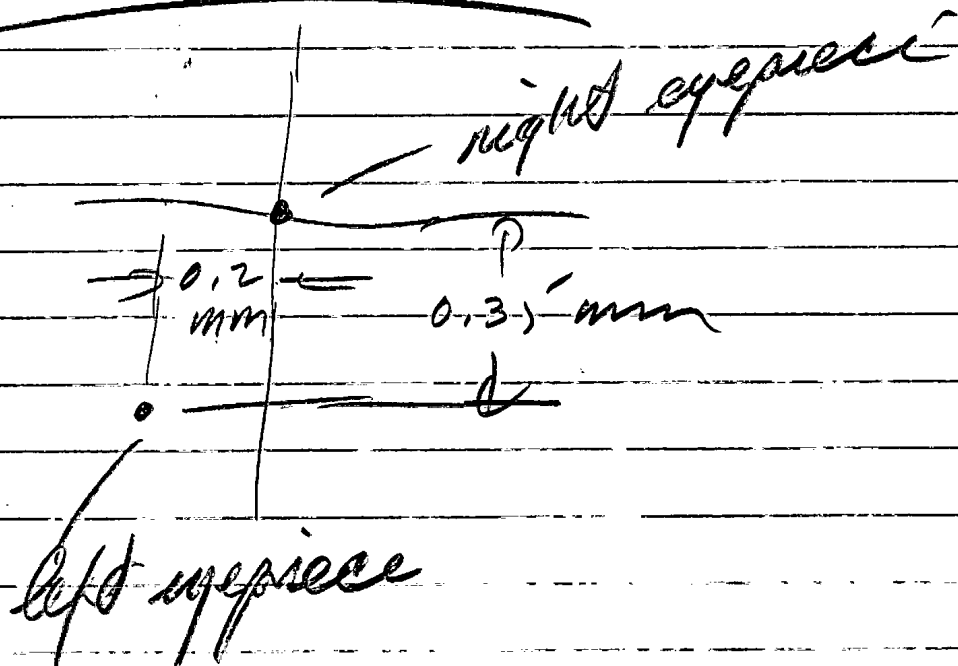 right eyepiece
0.2
mm
0.35 mm
left eyepiece